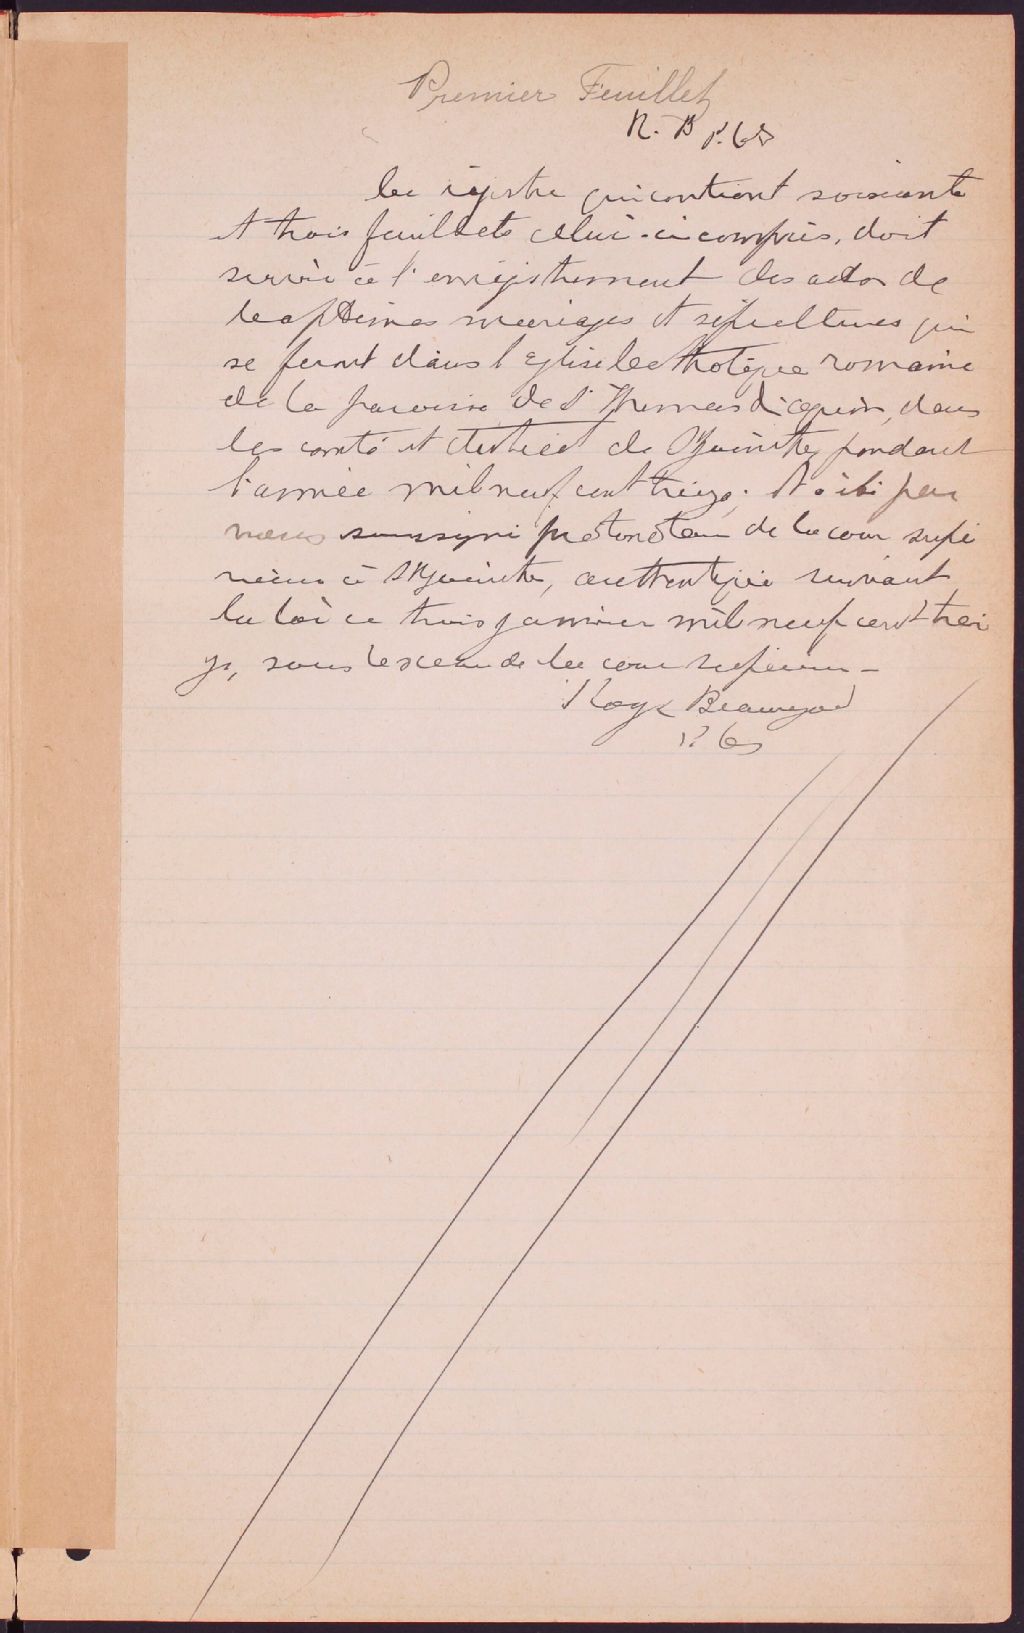 Premier Feuillet
R. B P.C.S
Ce registre qui contient soixante
et trois feuillets celui-ci compris, doit
servir à l'enregistrement des actes de
baptêmes mariages et sépultures qui
se feront dans l'Eglise Catholique romaine
de la paroisse de St Thomas d'Aquin, dans
les comté et district de St Hyacinthe, pendant
l'année mil neuf cent treize. Et a été par
nous soussigné protonotaire de la cour supé
rieure à St Hyacinthe, authentiqué suivant
la loi ce trois janvier mil neuf cent trei
ze, sous le sceau de la cour supérieure -
Roy & Beauregard
P.C.S